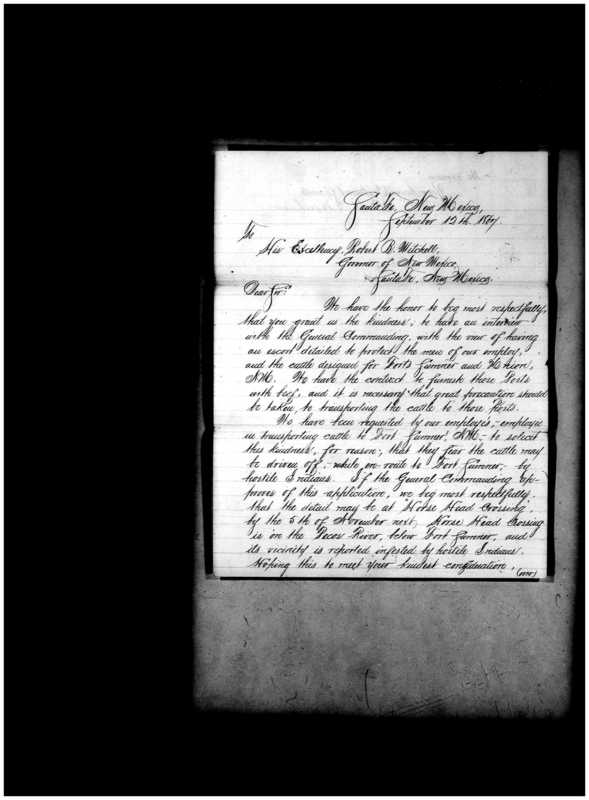 Santa Fe, New Mexico,
September 12th. 1867.
To
His Excellency, Robert B. Mitchell,
Governor of New Mexico,
Santa Fe, New Mexico.
Dear Sir:
We have the honor to beg most respectfully,
that you grant us the kindness, to have an interview
with the General Commanding, with the view of having
an escort detailed to protect the men of our employ,
and the cattle designed for Forts Sumner and
N.M. We have the contract to furnish those Posts
with beef, and it is necessary that great precaution should
be taken, to transporting the cattle to those Posts.
We have been requested by our employés, - employee
in transporting cattle to Fort Sumner, N.M. - to solicit
this kindness, for reason, that they fear the cattle may
be driven off, while en route to Fort Sumner, by
hostile Indians. If the General Commanding ap-
proves of this application, we beg most respectfully,
that the detail may be at "Horse Head Crossing"
by the 5th of November next. Horse Head Crossing
is on the Pecos River, below Fort Sumner, and
its vicinity is reported infested by hostile Indians.
Hoping this to meet your kindest consideration,
(over)